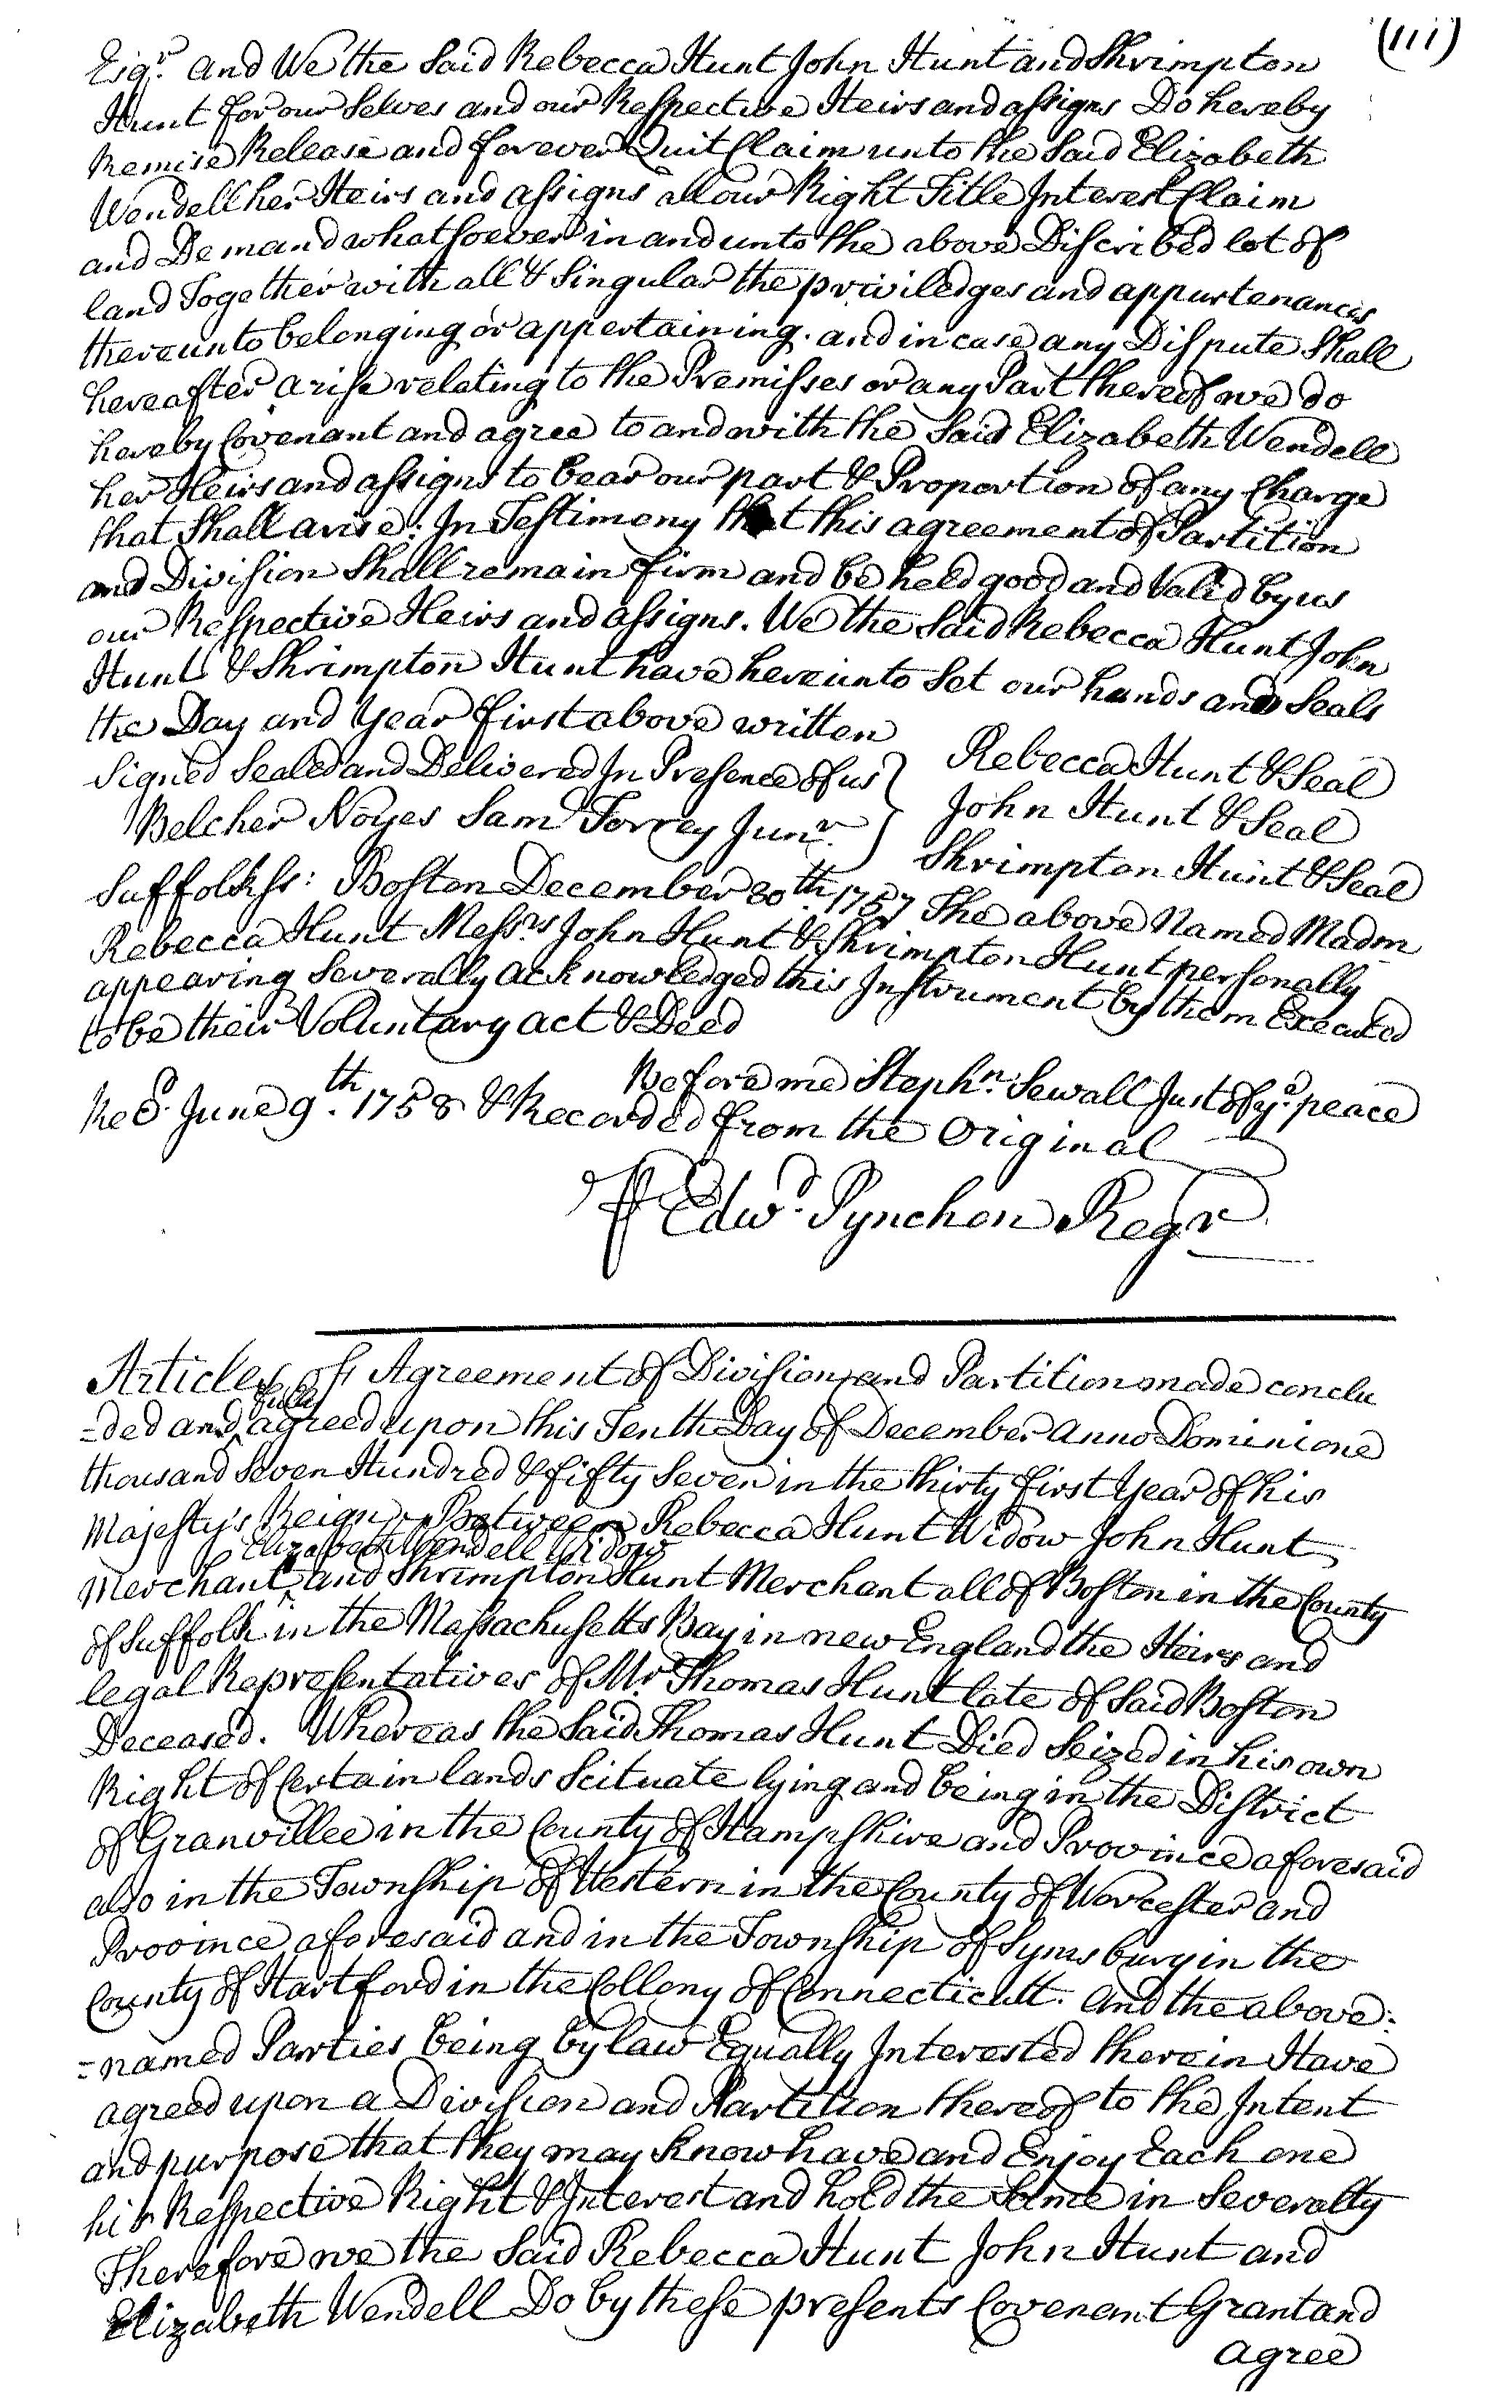 (111)
Esqr. and We the Said Rebecca Hunt John Hunt and Shrimpton
Hunt for our Selves and our Respective Heirs and assigns Do hereby
Remise Release and forever Quit Claim unto the Said Elizabeth
Wendell her Heirs and assigns all our Right Title Interest Claim
and Demand whatsoever in and unto the above Discribed lot of
land Together with all & Singular the priviledges and appurtenances
thereunto belonging or appertaining. and in case any Dispute Shall
hereafter arise relating to the Premisses or any Part thereof we do
hereby Covenant and agree to and with the Said Elizabeth Wendell
her Heirs and assigns to bear our part & Proportion of any Charge
that Shall arise: In Testimony that this agreement of Partition
and Division Shall remain firm and be held good and Valid by us
our Respective Heirs and assigns. We the Said Rebecca Hunt John
Hunt & Shrimpton Hunt have hereunto Set our hands and Seals
the Day and Year first above written
Signed Sealed and Delivered In Presence of us } Rebecca Hunt & Seal
Belcher Noyes Sam Torrey Junr. } John Hunt & Seal
Shrimpton Hunt & Seal
Suffolk ss: Boston December 20th. 1757 The above Named Madm
Rebecca Hunt Messrs John Hunt & Shrimpton Hunt personally
appearing Severally acknowledged this Instrument by them Executed
to be their Voluntary act & Deed
Before me Stephn. Sewall Just of ye. peace
Recd. June 9th. 1758 & Recorded from the Original
P Edwd. Pynchon Regr
Articles of Agreement of Division and Partition made conclu
=ded and fully agreed upon this Tenth Day of December Anno Domini one
thousand Seven Hundred & fifty Seven in the thirty first Year of his
Majesty's Reign Between Rebecca Hunt Widow John Hunt
Elizabeth Wendell Widow
Merchant and Shrimpton Hunt Merchant all of Boston in the County
of Suffolk in the Massachusetts Bay in new England the Heirs and
legal Representatives of Mr Thomas Hunt late of Said Boston
Deceased. Whereas the Said Thomas Hunt Died Seized in his own
Right of Certain lands Scituate lying and being in the District
of Granvillee in the County of Hampshire and Province aforesaid
also in the Township of Western in the County of Worcester and
Province aforesaid and in the Township of Symsbury in the
County of Hartford in the Collony of Connecticutt. And the above:
=named Parties being by law Equally Interested therein Have
agreed upon a Division and Partition thereof to the Intent
and purpose that they may know have and Enjoy Each one
his Respective Right & Interest and hold the Same in Severalty
Therefore we the Said Rebecca Hunt John Hunt and
Elizabeth Wendell Do by these presents Covenant Grant and
agree